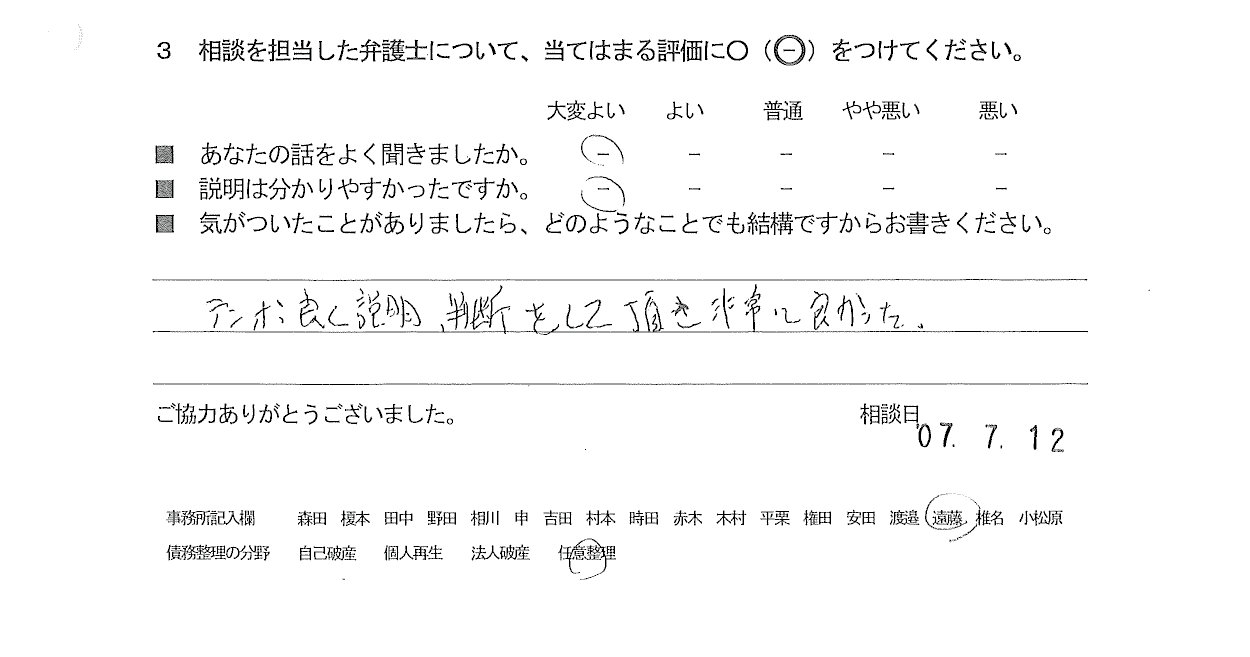 3 相談を担当した弁護士について、当てはまる評価に○（㊀）をつけてください。
大変よい よい 普通 やや悪い 悪い
■ あなたの話をよく聞きましたか。 − − − − −
■ 説明は分かりやすかったですか。 − − − − −
■ 気がついたことがありましたら、どのようなことでも結構ですからお書きください。
テンポ良く説明、判断をして頂き非常に良かった。
ご協力ありがとうございました。 相談日 '07. 7. 12
事務所記入欄 森田 榎本 田中 野田 相川 申 吉田 村本 時田 赤木 木村 平栗 権田 安田 渡邉 遠藤 椎名 小松原
債務整理の分野 自己破産 個人再生 法人破産 任意整理